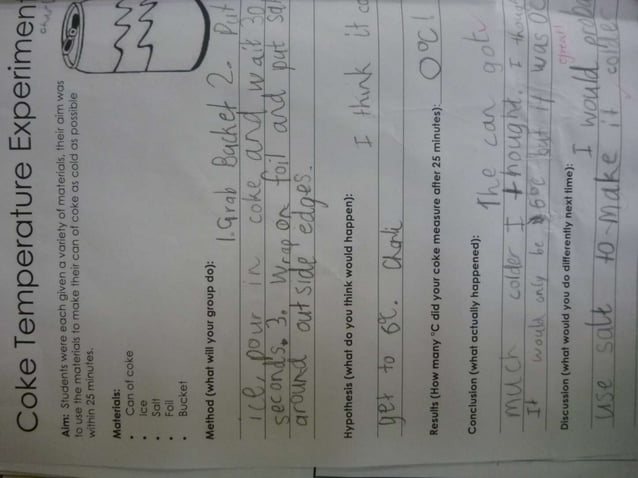 Coke Temperature Experiment
Aim: Students were each given a variety of materials, their aim was
to use the materials to make their can of coke as cold as possible
within 25 minutes.
Materials:
• Can of coke
• Ice
• Salt
• Foil
• Bucket
Method (what will your group do):
1. Grab Bucket 2. Put
ice, pour in coke and wait 30
seconds. 3. Wrap on foil and put
around outside edges.
Hypothesis (what do you think would happen):
I think it
get to 6°C.
Results (How many °C did your coke measure after 25 minutes):
0°C!
Conclusion (what actually happened):
The can got
much colder I thought. I
It would only be 6°C but it was
great!
Discussion (what would you do differently next time):
I would
use salt to make it colder